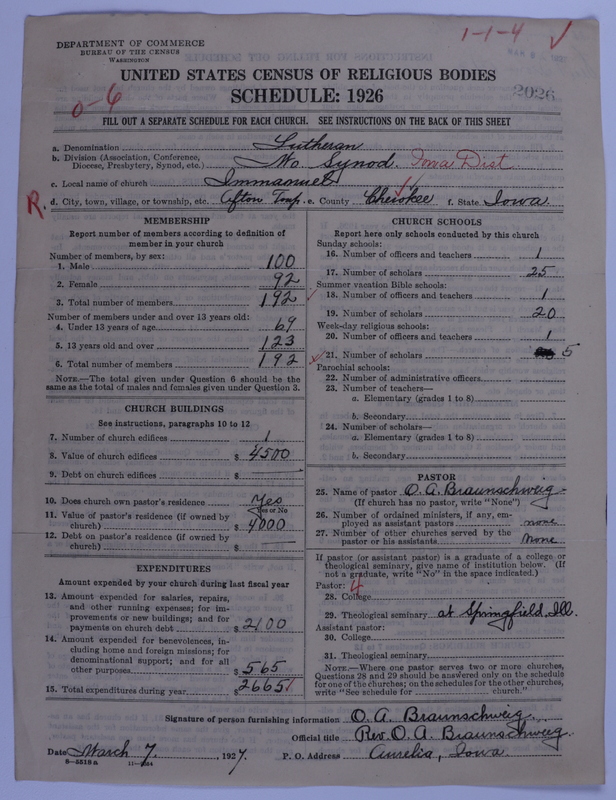 1-1-4 ✓
DEPARTMENT OF COMMERCE
BUREAU OF THE CENSUS
WASHINGTON
UNITED STATES CENSUS OF RELIGIOUS BODIES
SCHEDULE: 1926
2026
0-6
FILL OUT A SEPARATE SCHEDULE FOR EACH CHURCH. SEE INSTRUCTIONS ON THE BACK OF THIS SHEET
a. Denomination Lutheran
b. Division (Association, Conference, Diocese, Presbytery, Synod, etc.) Mo Synod. Iowa Dist
c. Local name of church Immanuel
R
d. City, town, village, or township, etc. Afton Twp. e. County Cherokee f. State Iowa
MEMBERSHIP
Report number of members according to definition of
member in your church
Number of members, by sex:
1. Male 100
2. Female 92
3. Total number of members 192
Number of members under and over 13 years old:
4. Under 13 years of age 69
5. 13 years old and over 123
6. Total number of members 192
NOTE.—The total given under Question 6 should be the
same as the total of males and females given under Question 3.
CHURCH BUILDINGS
See instructions, paragraphs 10 to 12
7. Number of church edifices 1
8. Value of church edifices $ 4500
9. Debt on church edifices $
10. Does church own pastor's residence Yes
Yes or No
11. Value of pastor's residence (if owned by
church) $ 4000
12. Debt on pastor's residence (if owned by
church) $ —
EXPENDITURES
Amount expended by your church during last fiscal year
13. Amount expended for salaries, repairs,
and other running expenses; for im-
provements or new buildings; and for
payments on church debt $ 2100
14. Amount expended for benevolences, in-
cluding home and foreign missions; for
denominational support; and for all
other purposes $ 565
15. Total expenditures during year $ 2665
CHURCH SCHOOLS
Report here only schools conducted by this church
Sunday schools:
16. Number of officers and teachers 1
17. Number of scholars 25
Summer vacation Bible schools:
18. Number of officers and teachers 1
19. Number of scholars 20
Week-day religious schools:
20. Number of officers and teachers 1
21. Number of scholars 5
Parochial schools:
22. Number of administrative officers
23. Number of teachers—
a. Elementary (grades 1 to 8)
b. Secondary
24. Number of scholars—
a. Elementary (grades 1 to 8)
b. Secondary
PASTOR
25. Name of pastor O. A. Braunschweig
(If church has no pastor, write "None")
26. Number of ordained ministers, if any, em-
ployed as assistant pastors none
27. Number of other churches served by the
pastor or his assistants None
If pastor (or assistant pastor) is a graduate of a college or
theological seminary, give name of institution below. (If
not a graduate, write "No" in the space indicated.)
Pastor: 4
28. College
29. Theological seminary at Springfield, Ill.
Assistant pastor:
30. College
31. Theological seminary
NOTE.—Where one pastor serves two or more churches,
Questions 28 and 29 should be answered only on the schedule
for one of the churches; on the schedules for the other churches,
write "See schedule for church."
Signature of person furnishing information O. A. Braunschweig
Official title Rev. O. A. Braunschweig
Date March 7, 1927. P. O. Address Aurelia, Iowa.